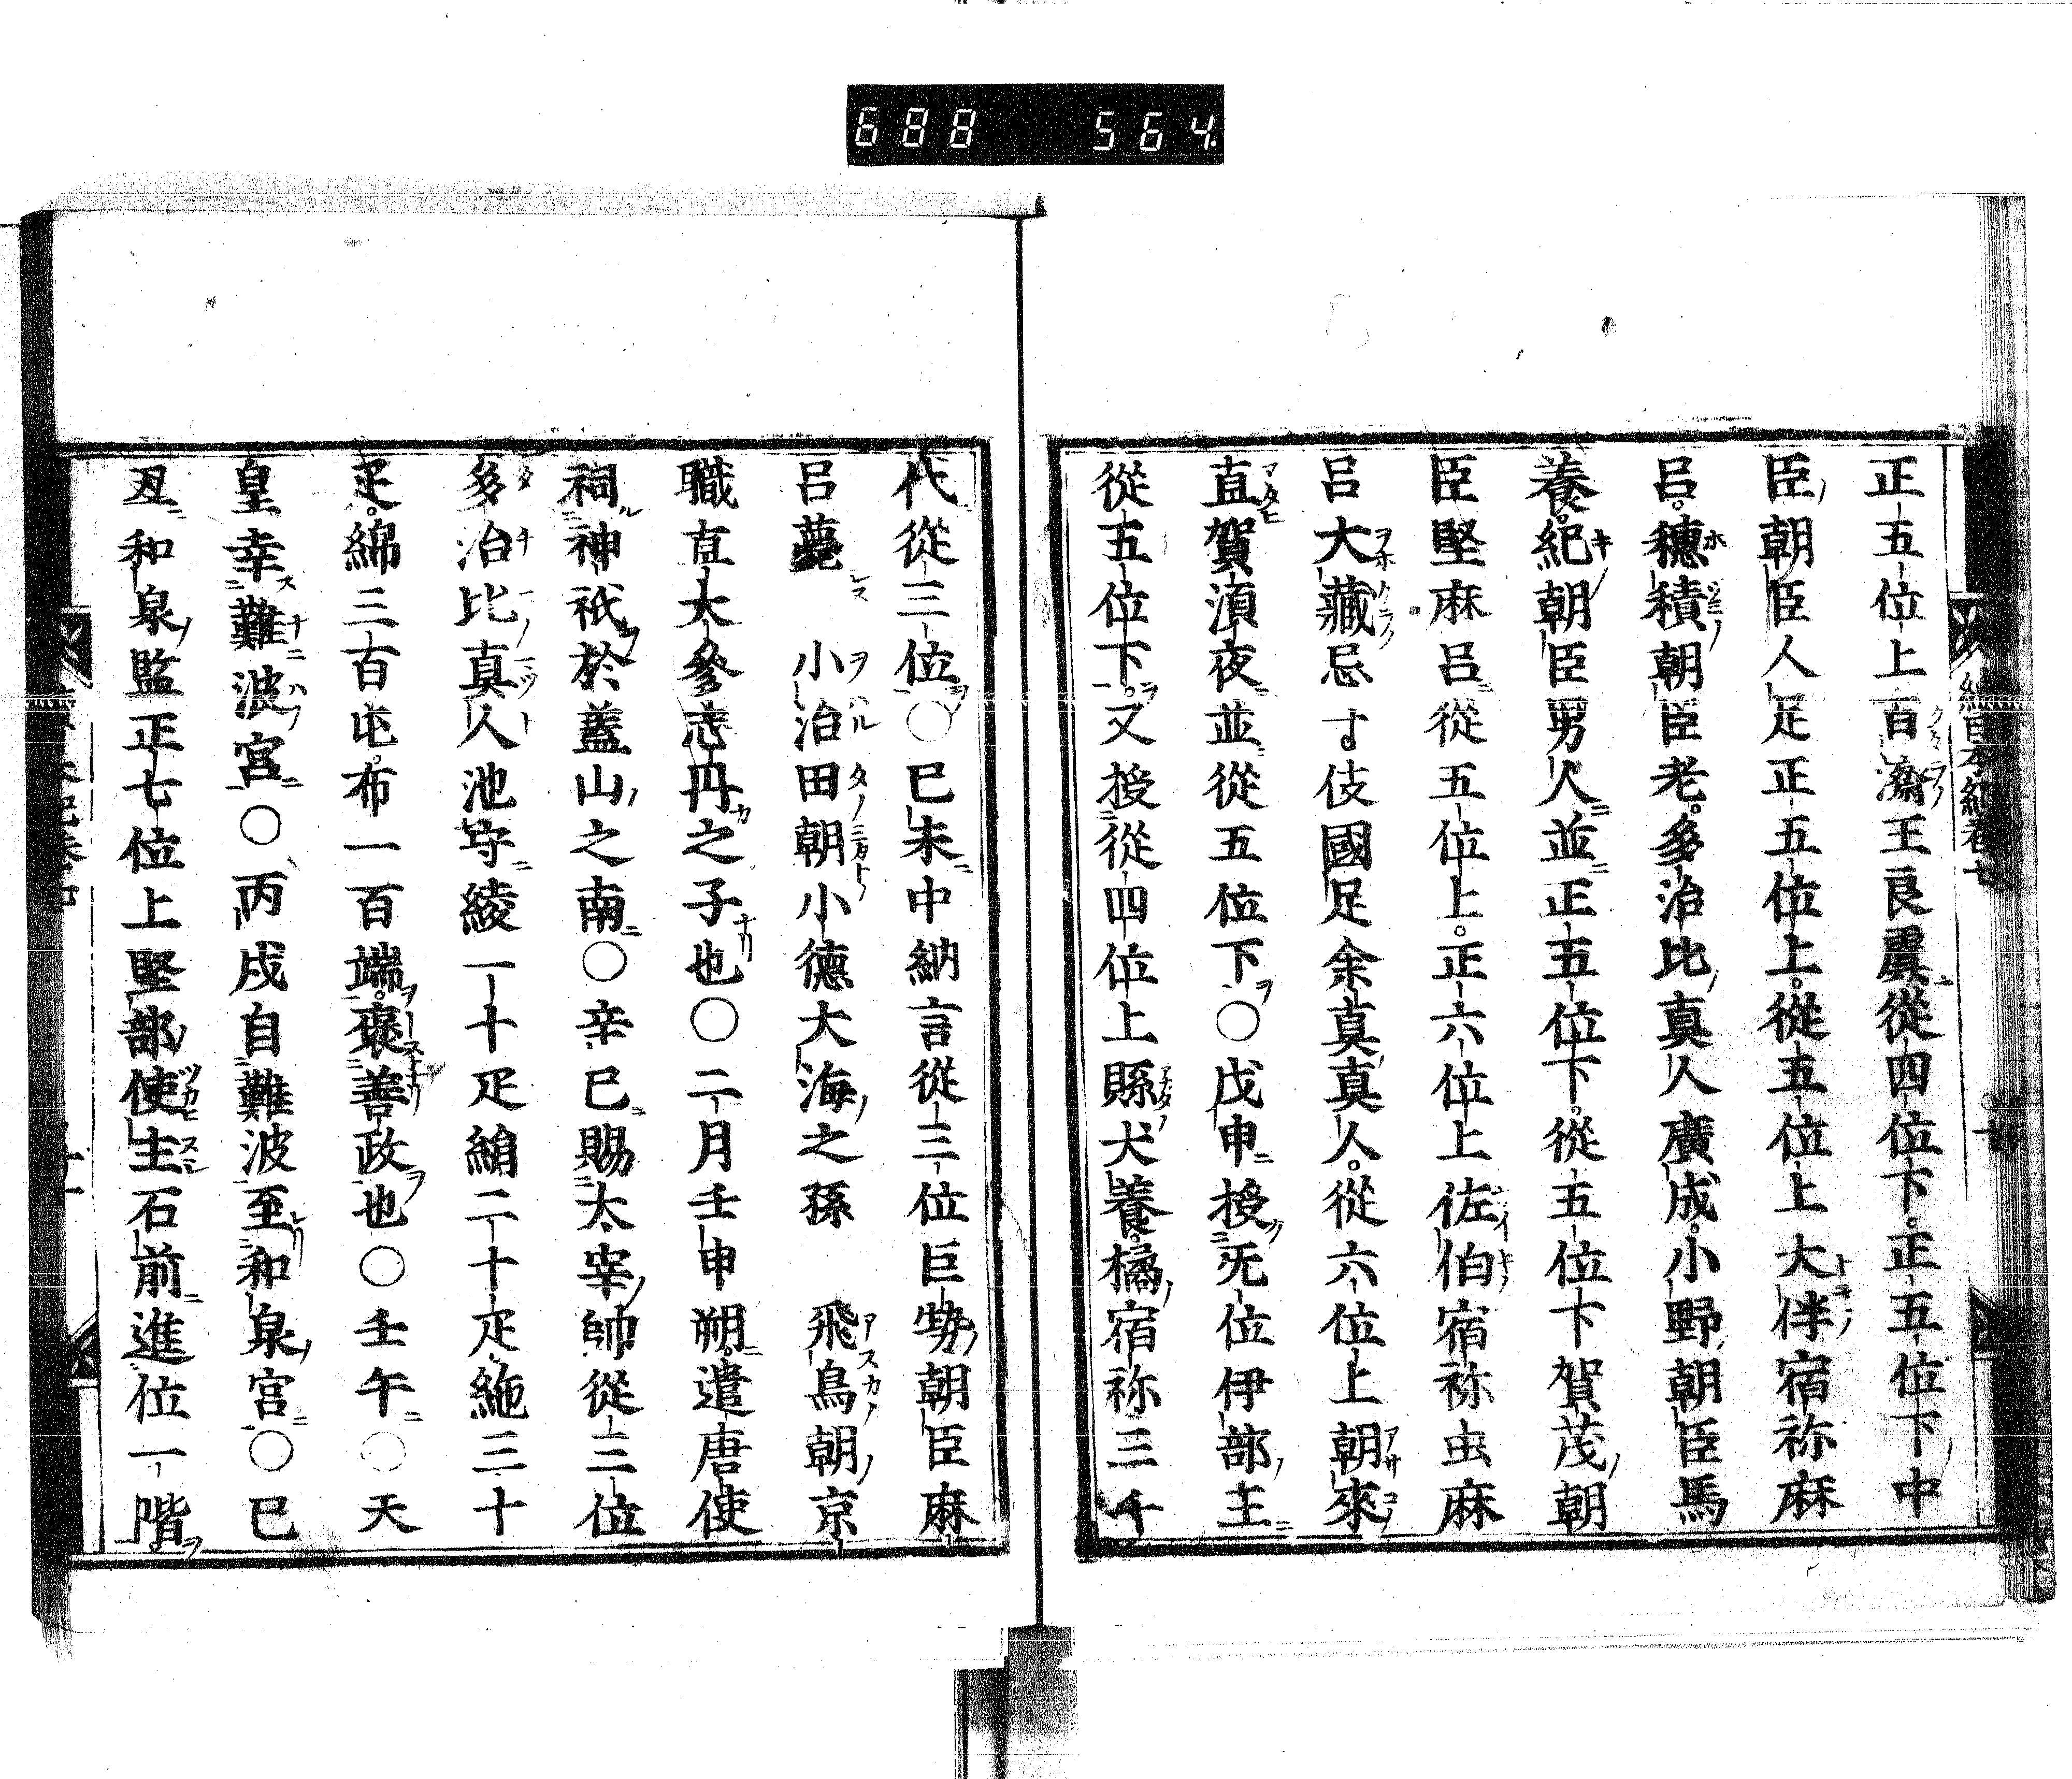 688 564
正五位上百濟王良虞從四位下。正五位下中
臣朝臣人足正五位上。從五位上大伴宿祢麻
呂。穗積朝臣老。多治比真人廣成。小野朝臣馬
養。紀朝臣男人並正五位下。從五位下賀茂朝
臣堅麻呂從五位上。正六位上佐伯宿祢虫麻
呂大藏忌寸伎國足余真真人。從六位上朝來
直賀湏夜並從五位下○戊申授旡位伊部王
從五位下。又授從四位上縣犬養。橘宿祢三千
代從三位○巳未中納言從三位巨勢朝臣麻
呂薨 小治田朝小德大海之孫 飛鳥朝京
職直大參志丹之子也○二月壬申朔。遣唐使
祠神祇於蓋山之南○辛巳賜太宰帥從三位
多治比真人池守綾一十疋絹二十疋。絁三十
疋。綿三百屯。布一百端。褒善政也○壬午○天
皇幸難波宮○丙戌自難波至和泉宮○巳
丑和泉監正七位上堅部使主石前進位一階
續日本紀卷七